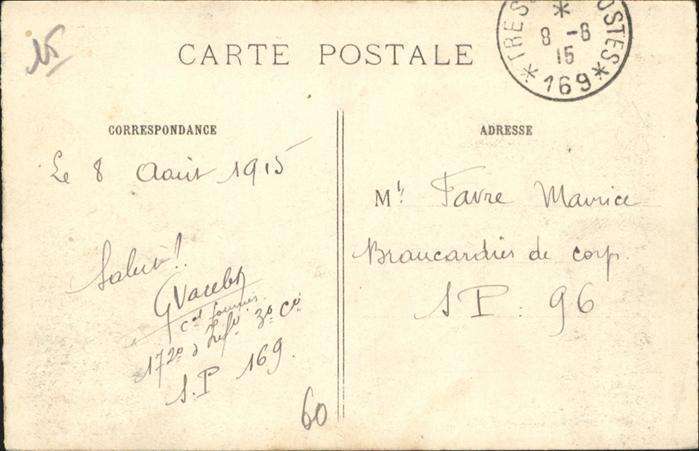 CARTE POSTALE
TRES
POSTES
8 -8
15
* 169 *
CORRESPONDANCE
Le 8 Août 1915
Salut!
Cal fourrier
172e d'Infie 30 Cie
S.P 169.
60
ADRESSE
Mr Favre Maurice
Brancardier de corp.
S P. 96